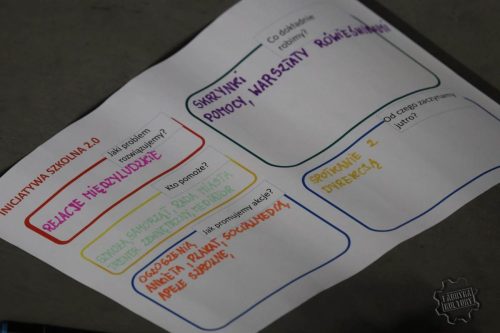 INICJATYWA SZKOLNA 2.0
Jaki problem
rozwiązujemy?
RELACJE MIĘDZYLUDZKIE
Kto pomoże?
SZKOŁA, SAMORZĄD, RADA MIASTA
Jak promujemy akcję?
OGŁOSZENIA,
ANKIETA, PLAKAT, SOCIALMEDIA,
APELE SZKOLNE,
Co dokładnie
robimy?
SKRZYNKI
POMOCY, WARSZTATY RÓWIEŚNIKAMI
Od czego zaczynamy
jutro?
SPOTKANIE Z
DYREKCJĄ
FABRYKA
KULTURY